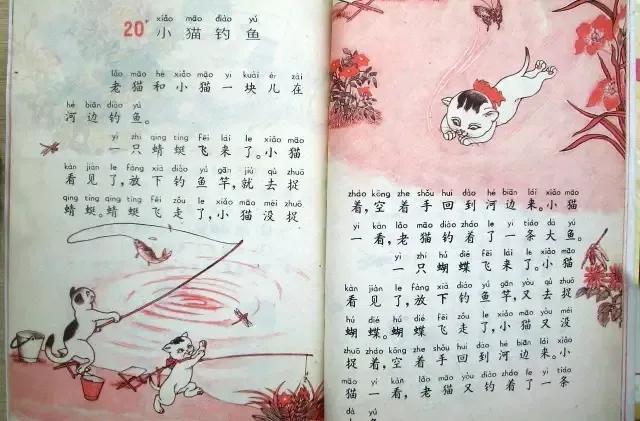 20 xiǎo māo diào yú
小猫钓鱼
lǎo māo hé xiǎo māo yí kuài ér zài
老猫和小猫一块儿在
hé biān diào yú
河边钓鱼。
yì zhī qīng tíng fēi lái le xiǎo māo
一只蜻蜓飞来了。小猫
kàn jiàn le fàng xià diào yú gān jiù qù zhuō
看见了,放下钓鱼竿,就去捉
qīng tíng qīng tíng fēi zǒu le xiǎo māo méi zhuō
蜻蜓。蜻蜓飞走了,小猫没捉
zháo kōng zhe shǒu huí dào hé biān lái xiǎo māo
着,空着手回到河边来。小猫
yí kàn lǎo māo diào zháo le yì tiáo dà yú
一看,老猫钓着了一条大鱼。
yì zhī hú dié fēi lái le xiǎo māo
一只蝴蝶飞来了。小猫
kàn jiàn le fàng xià diào yú gān yòu qù zhuō
看见了,放下钓鱼竿,又去捉
hú dié hú dié fēi zǒu le xiǎo māo yòu méi
蝴蝶。蝴蝶飞走了,小猫又没
zhuō zháo kōng zhe shǒu huí dào hé biān lái xiǎo
捉着,空着手回到河边来。小
māo yí kàn lǎo māo yòu diào zháo le yì tiáo
猫一看,老猫又钓着了一条
dà yú